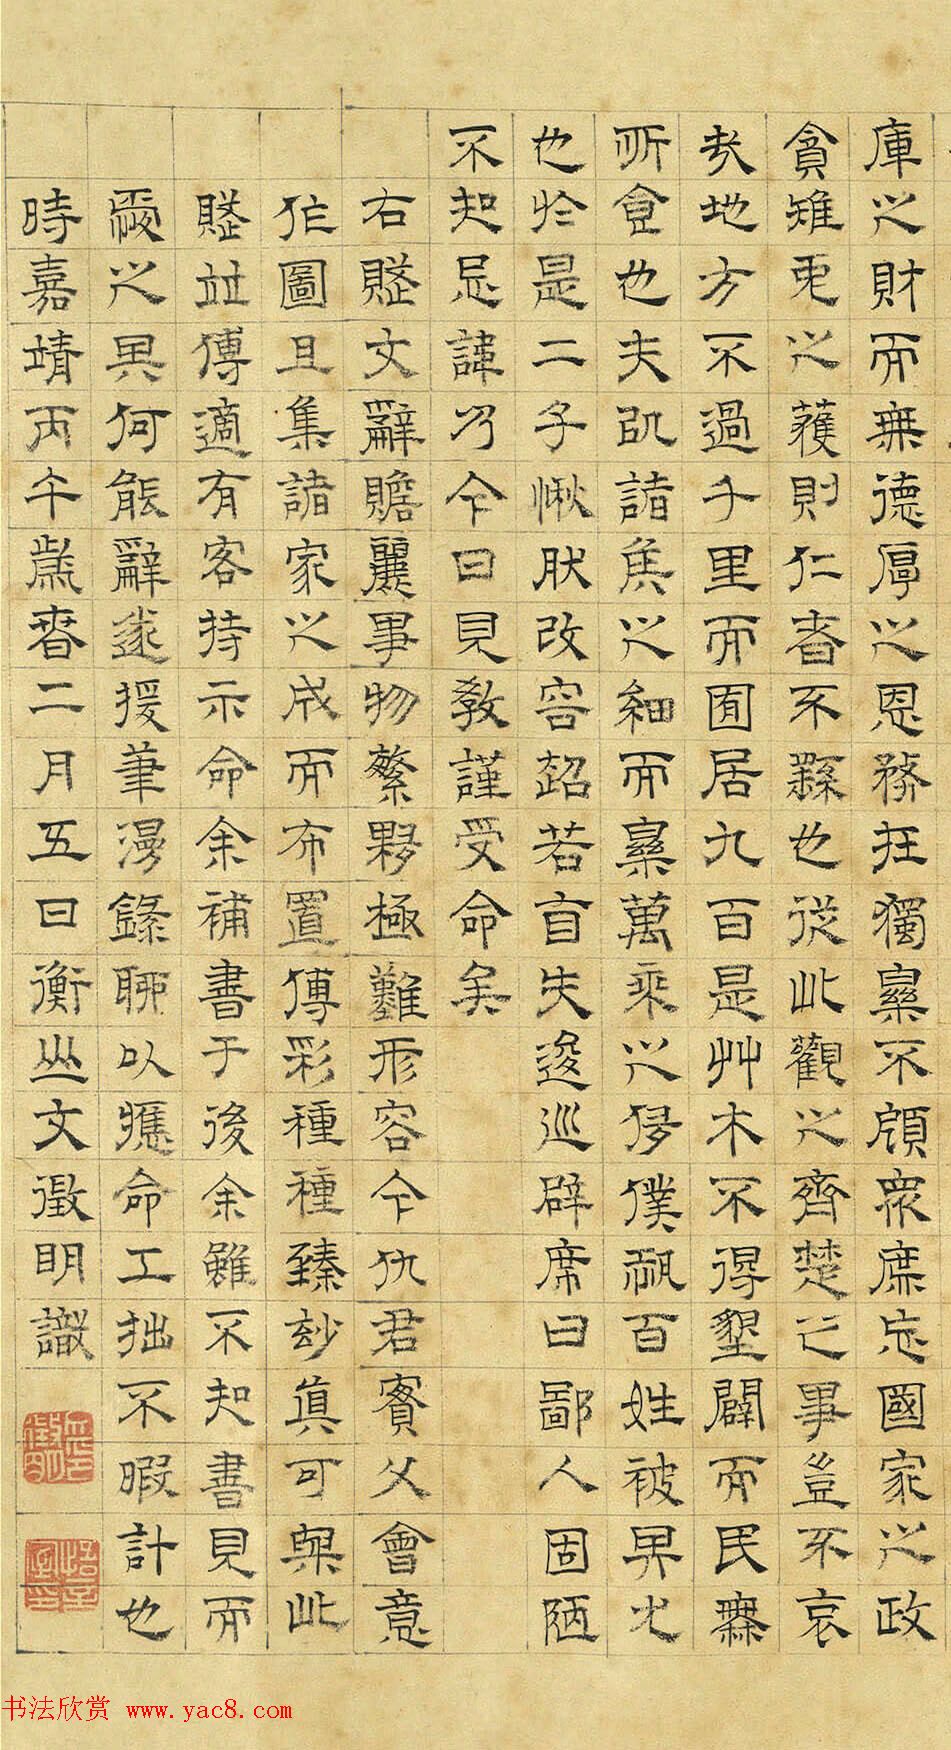 庫之財而無德厚之恩務在獨樂不顧眾庶忘國家之政
貪雉兔之獲則仁者不繇也從此觀之齊楚之事豈不哀
哉地方不過千里而囿居九百是艸木不得墾闢而民無
所食也夫以諸侯之細而樂萬乘之侈僕恐百姓被其尤
也於是二子愀然改容超若自失逡巡辟席曰鄙人固陋
不知忌諱乃今日見教謹受命矣
右賦文辭贍麗事物繁夥極難形容今仇君實父會意
作圖且集諸家之成而布置傅彩種種臻妙真可與此
賦並傳適有客持示命余補書于後余雖不知書見而
愛之其何能辭遂援筆漫錄聊以應命工拙不暇計也
時嘉靖丙午歲春二月五日衡山文徵明識
徵明印
悟言室印
书法欣赏 www.yac8.com